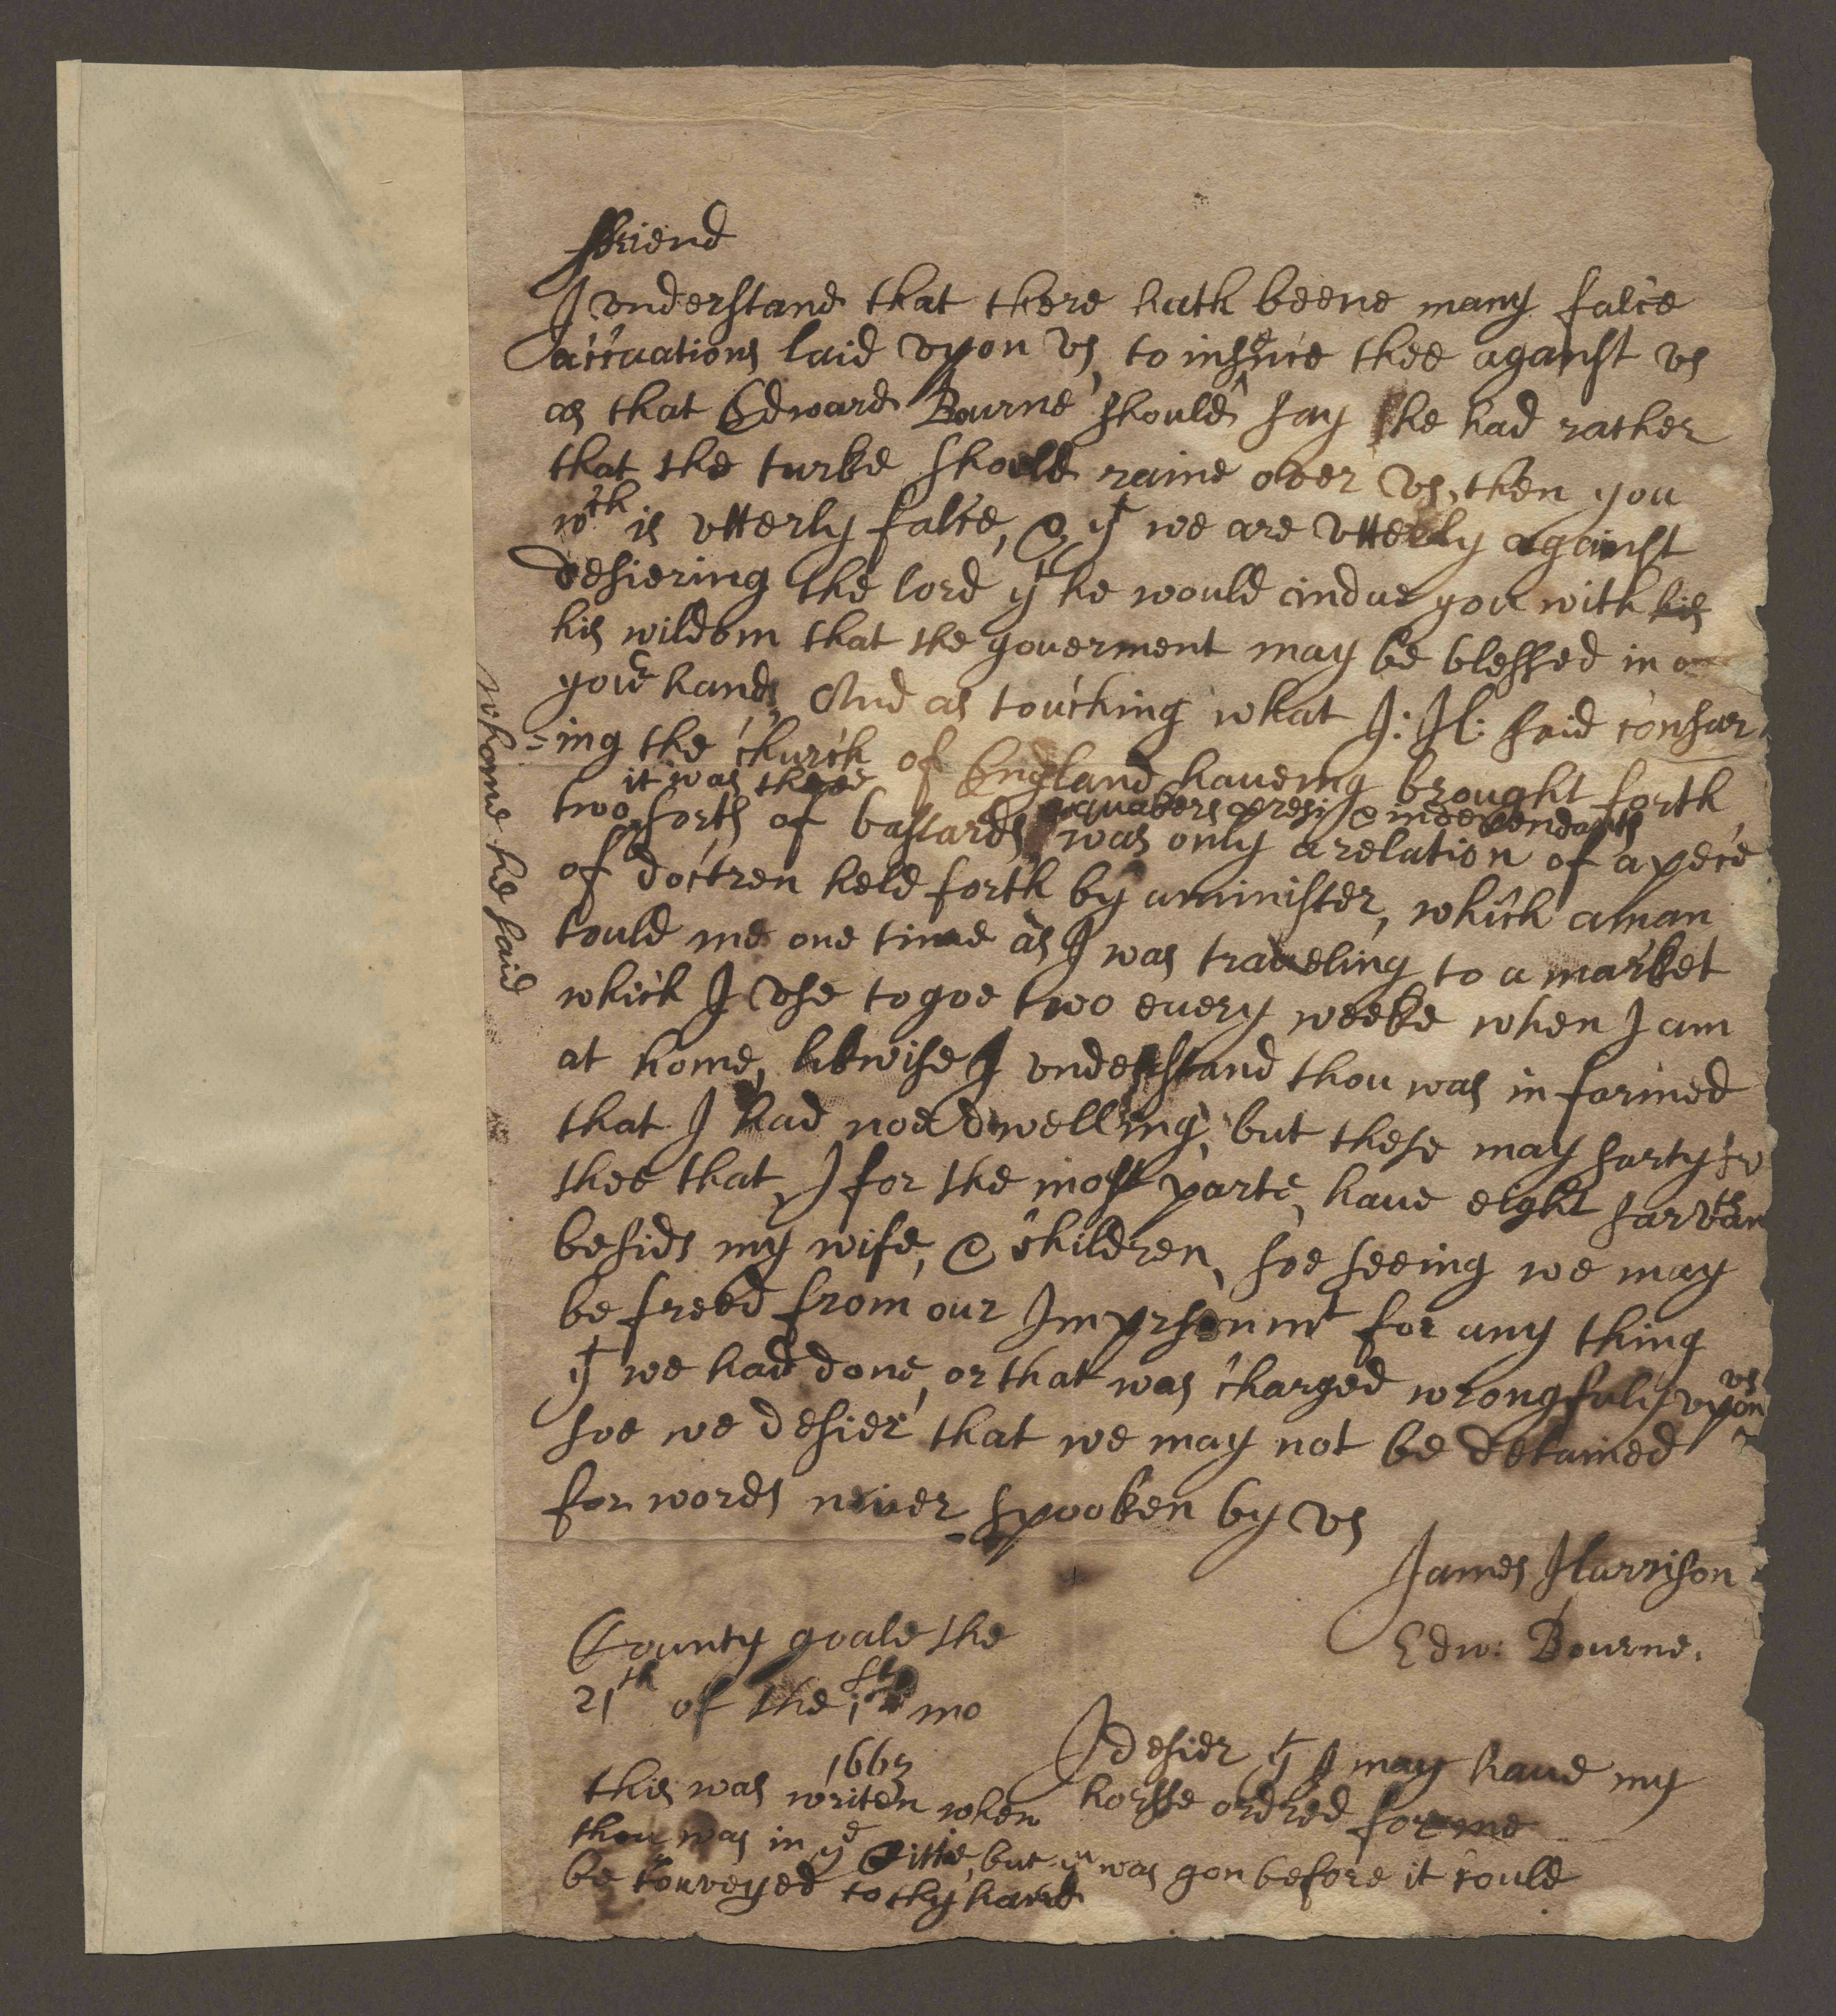 ffriend
I vnderstand that there hath beene many falce
accuations laid vpon vs, to insence thee against vs
as that Edward Bourne should say he had rather
that the turke should raine over vs, then you
wch is vtterly falce, & yt we are vtterly against
desiering the lord yt he would indue you with his
his wisdom that the goverment may be blessed in
your hands, And as touching what J: H: said consar
=ing the church of England haueing brought forth
it was these
two sorts of bastards quakers presi & independants
was only a relation of a pece
of doctren held forth by a minister, which a man
tould me one time as I was traveling to a market
which I vse to goe two euery weeke when I am
at home, likwise I vnderstand thou was informed
that I had noe dwelling, but these may sartyfy
thee that I for the most parte, haue eight sarvan
besids my wife, & children, soe seeing we may
be freed from our Imprsonmt for any thing
yt we had done, or that was charged wrongfuly vpon vs
soe we desier that we may not be detained
for words never spooken by vs
James Harrison
Edw: Bourne.
County goale the
21th of the 1st mo
1663
I desier yt I may haue my
horsse ordred for me
this was writen when
thou was in ye Citte, but yu was gon before it could
be conveyed to thy hand
whome he said